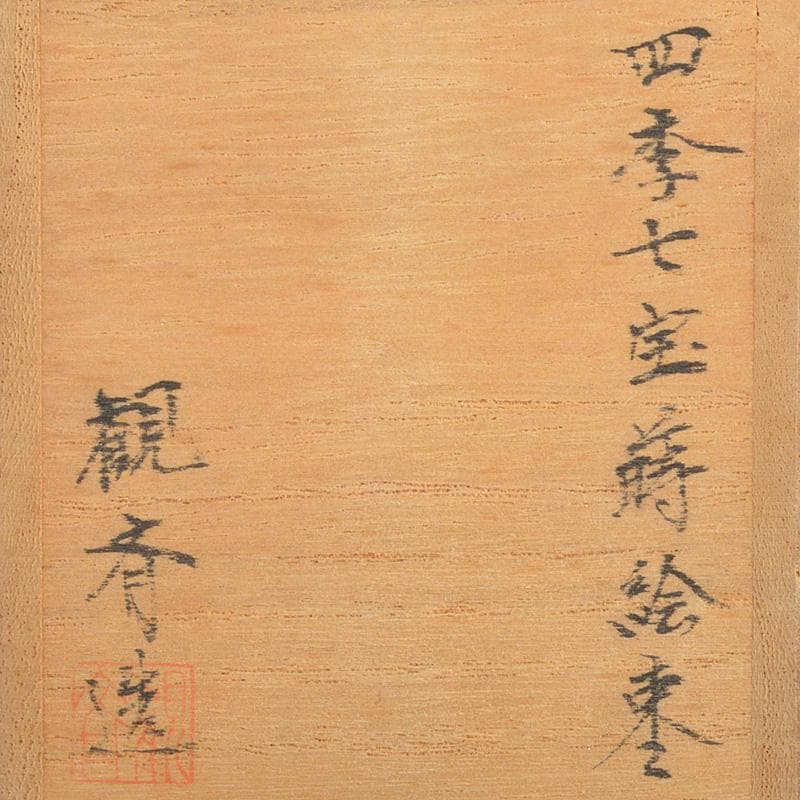 四季七宝蒔絵棗
觀斉造